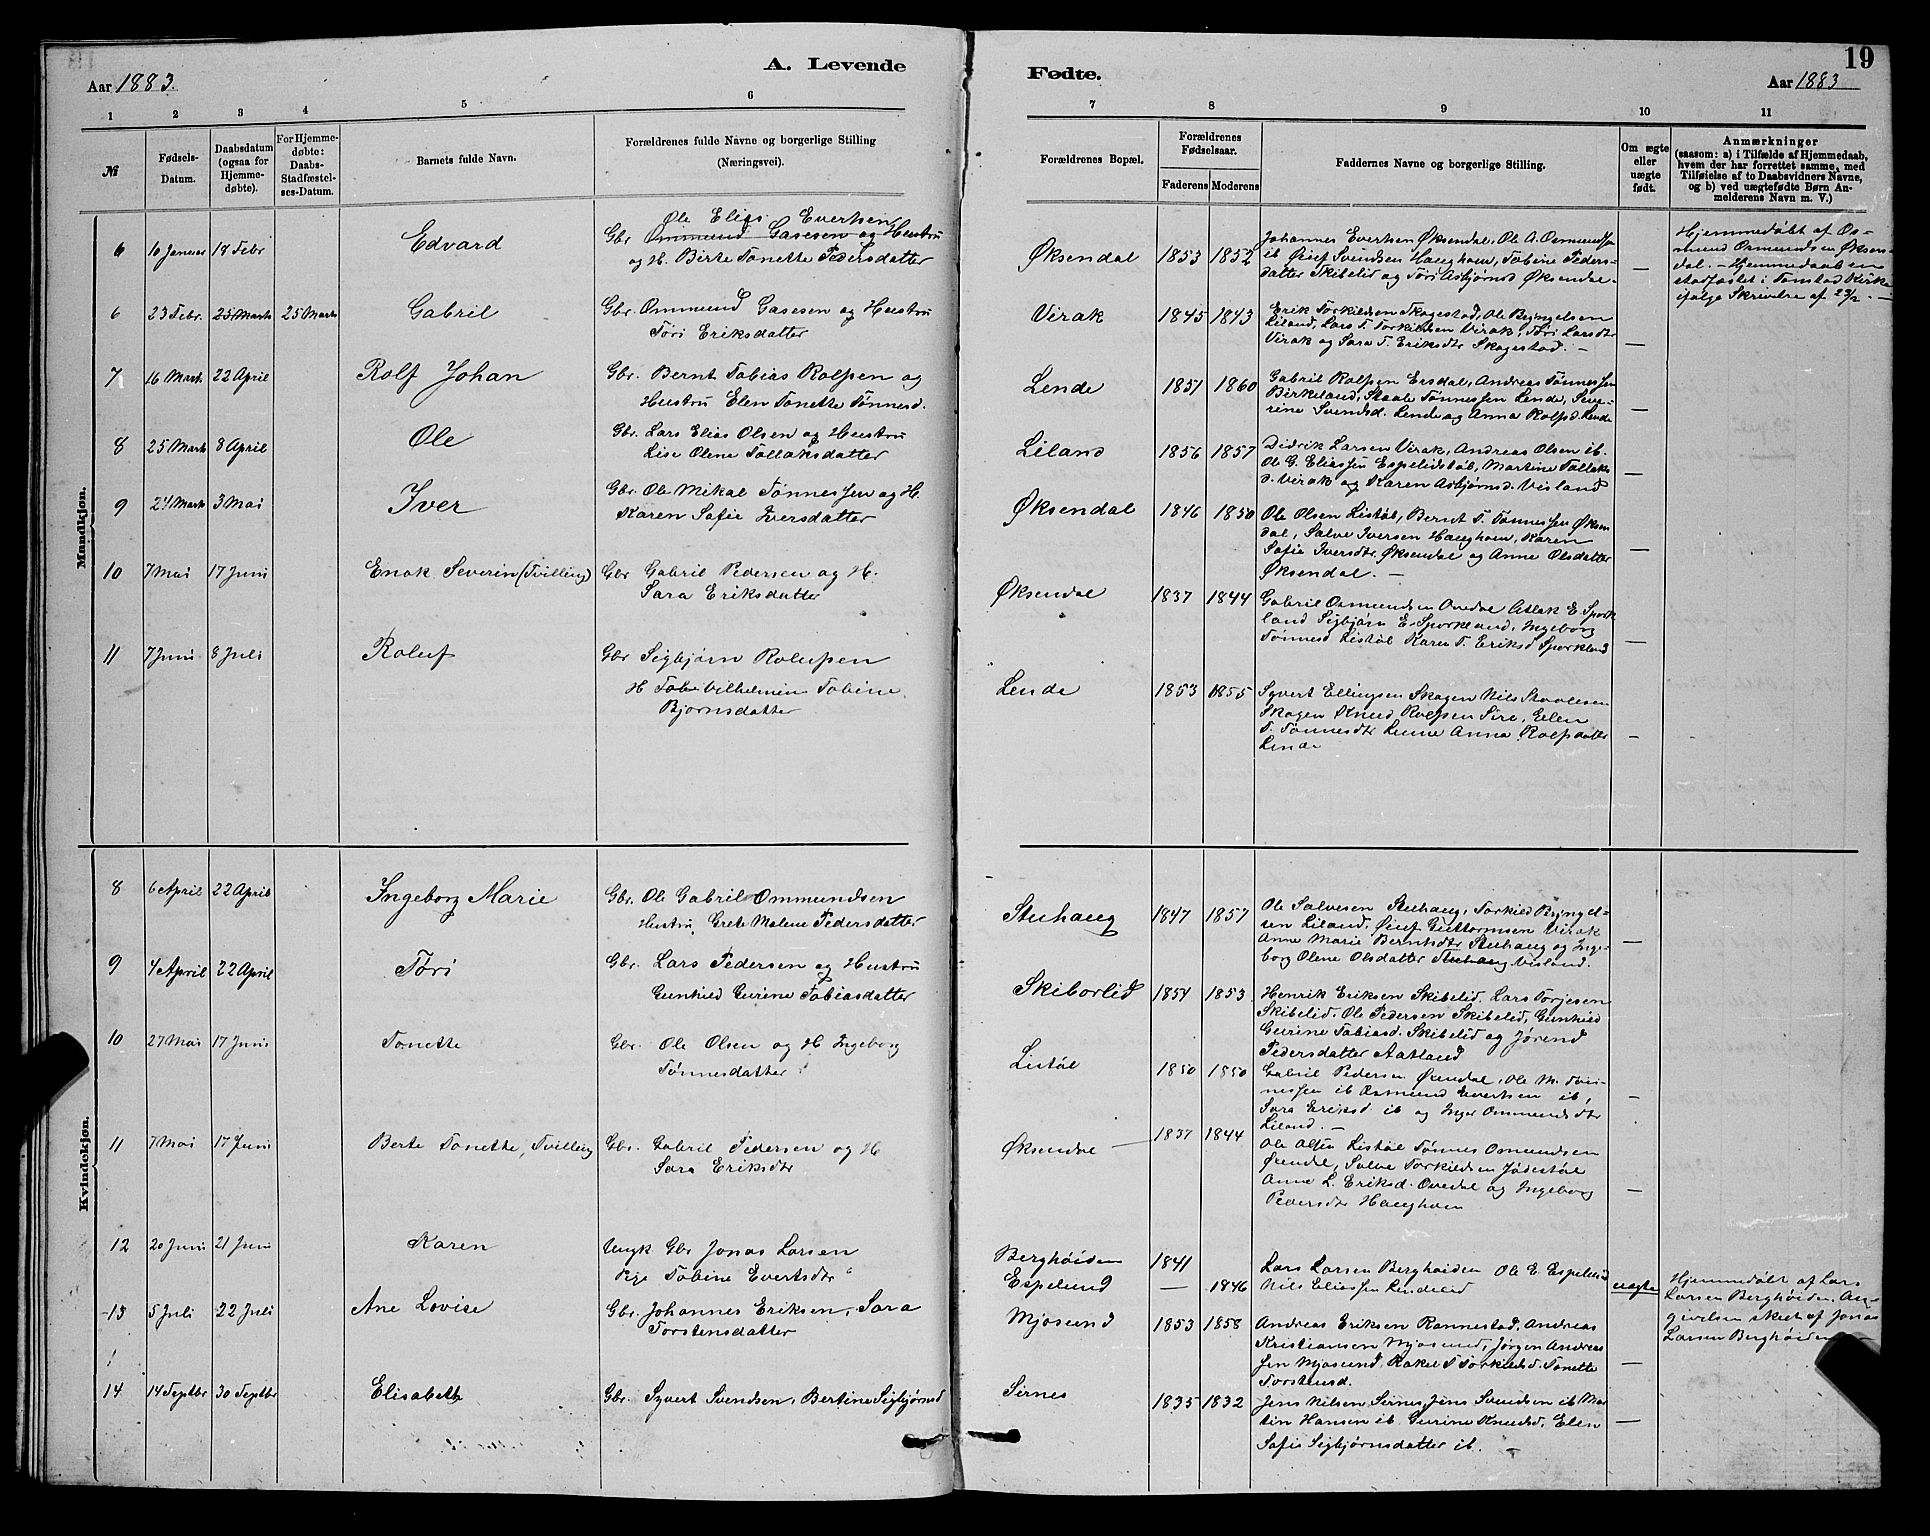 A. Levende Fødte. 19
Aar 1883. Aar 1883
1 2 3 4 5 6 7 8 9 10 11
№ Fødsels-Datum. Daabsdatum (ogsaa for Hjemme-døbte). For Hjemme-døbte: Daabs-Stadfæstel-ses-Datum. Barnets fulde Navn. Forældrenes fulde Navne og borgerlige Stilling (Næringsvei). Forældrenes Bopæl. Forældrenes Fødselsaar. Faderens Moderens Faddernes Navne og borgerlige Stilling. Om ægte eller uægte født. Anmærkninger (saasom: a) i Tilfælde af Hjemmedaab, hvem der har forrettet samme, med Tilføielse af to Daabsvidners Navne, og b) ved uægtefødte Børn An-melderens Navn m. V.)
Mandkjøn.
6 10 Januar 18 Febr Edvard Gbr Ole Elias Evertsen
Ommund Gasesen og Hustru
og H. Birte Tonette Pedersdatter
Øksendal 1853 1852 Johannes Evertsen Øksendal, Ole A. Osmundsen
ib Øief Svendsen Haughom, Tobine Peders-
datter Skibelid og Tøri Asbjørnsd Øksendal. —
Hjemmedøbt af Os-
mund Osmundsen Øksen-
dal. — Hjemmedaaben
stadfæstet i Tonstad Kirke
ifølge Skrivelse af 23/2. —
6 23 Febr. 25 Marts 25 Marts Gabril Gbr. Ommund Gasesen og Hustru
Tøri Eriksdatter
Virak 1845 1843 Erik Torkildsen Skagestad, Ole Bryngelsen
Liland, Lars T. Torkildsen Virak, Tøri Larsdtr
Virak og Sara T. Eriksdtr Skagestad. — —
7 16 Marts 22 April Rolf Johan Gbr. Bernt Tobias Rolfsen og
Hustru Elen Tonette Tønnesd.
Lende 1851 1860 Gabril Rolfsen Ersdal, Andreas Tønnessen
Birkeland, Staale Tønnessen Lende, Seve-
rine Svendsd. Lende og Anna Rolfsd. Lende —
8 25 Marts 8 April Ole Gbr. Lars Elias Olsen og Hustru
Lise Olene Tollaksdatter
Liland 1856 1857 Didrik Larsen Virak, Andreas Olsen ib.
Ole G. Eliassen Espelidstøl, Martine Tollaks
d. Virak og Karen Asbjørnsd. Visland —
9 21 Marts 3 Mai Iver Gbr. Ole Mikal Tønnessen og H.
Karen Sofie Iversdatter
Øksendal 1846 1850 Ole Olsen Listøl, Bernt T. Tønnessen Øksen
dal, Salve Iversen Haughom, Karen
Sofia Iversdtr. Øksendal og Anne Olsdatter
Øksendal. — —
10 7 Mai 17 Juni Enok Severin (Tvilling) Gbr Gabril Pedersen og H.
Sara Eriksdatter
Øksendal 1837 1844 Gabril Osmundsen Ovedal Aslak E. Spork
land Sigbjørn E. Sporkland, Ingeborg
Tønnesd Listøl Karen T. Eriksd Sporkland —
11 7 Juni 8 Juli Roluf Gbr Sigbjørn Rolufsen
H Vilhelmine Tobine
Bjørnsdatter
Lende 1853 1855 Syvert Ellingsen Skogen Nils Staalesen
Skogen Knud Rolfsen Sire, Elen
T. Tønnesdtr Lunne Anna Rolfsdatter
Lende —
Kvindekjøn.
8 6 April 22 April Ingeborg Marie Gbr. Ole Gabril Ommundsen
Hustru, Grete Malene Pedersdatter
Stuhaug 1847 1857 Ole Salvesen Stuhaug, Torkild Bryngel-
sen Liland, Øief Guttormsen Virak
Anne Marie Berntsdtr Stuhaug og Inge-
borg Olene Olsdatter Stuhaug Visland. —
9 4 April 22 April Tøri Gbr. Lars Pedersen og Hustru
Gunhild Gurine Tobiasdatter
Skiborlid 1854 1853 Henrik Eriksen Skibelid, Lars Torjesen
Skibelid, Ole Pedersen Skibelid, Gunhild
Gurine Tobiasd. Skibelid og Jørend
Pedersdatter Aatland
10 27 Mai 17 Juni Tonette Gbr. Ole Olsen og H Ingeborg
Tønnesdatter
Listøl 1850 1850 Gabril Pedersen Øxendal, Ole M. Tøn-
nessen ib Osmund Evertsen ib,
Sara Eriksd. ib og Inger Ommundsdtr
Liland. — —
11 7 Mai 17 Juni Berte Tonette, Tvilling Gbr. Gabril Pedersen og H
Sara Eriksdtr
Øksendal 1837 1844 Ole Olsen Listøl Tønnes Osmundsen
Øxendal, Salve Torkildsen Jødestøl
Anne L. Eriksd. Ovedal og Ingeborg
Pedersdtr Haughom —
12 20 Juni 21 Juni Karen Ungk Gbr Jonas Larsen
Pige Tobine Evertsdtr
Berghøiden 1841
Espelund — 1846
Lars Larsen Berghøiden Ole E. Espelund
Nils Eliassen Lindelid uægte
Hjemmedøbt af Lars
Larsen Berghøiden. An-
givelsen skeet af Jonas
Larsen Berghøiden
13 5 Juli 22 Juli Ane Lovise Gbr. Johannes Eriksen, Sara
Torstensdatter
Mjosund 1853 1858 Andreas Eriksen Rannestad, Andreas
Kristiansen Mjosund, Jørgen Andreas
sen Mjosund, Rakel T Torkildsd. Tonette
Torstensd. —
14 14 Septbr 30 Septbr Elisabeth Gbr. Syvert Svendsen, Bertine Sigbjørnsd
Sirnes 1835 1832 Jens Nilsen Sirnes, Jens Svendsen ib Mar
tin Hansen ib Gurine Knudsd, Elen
Sofie Sigbjørnsdatter ib. —